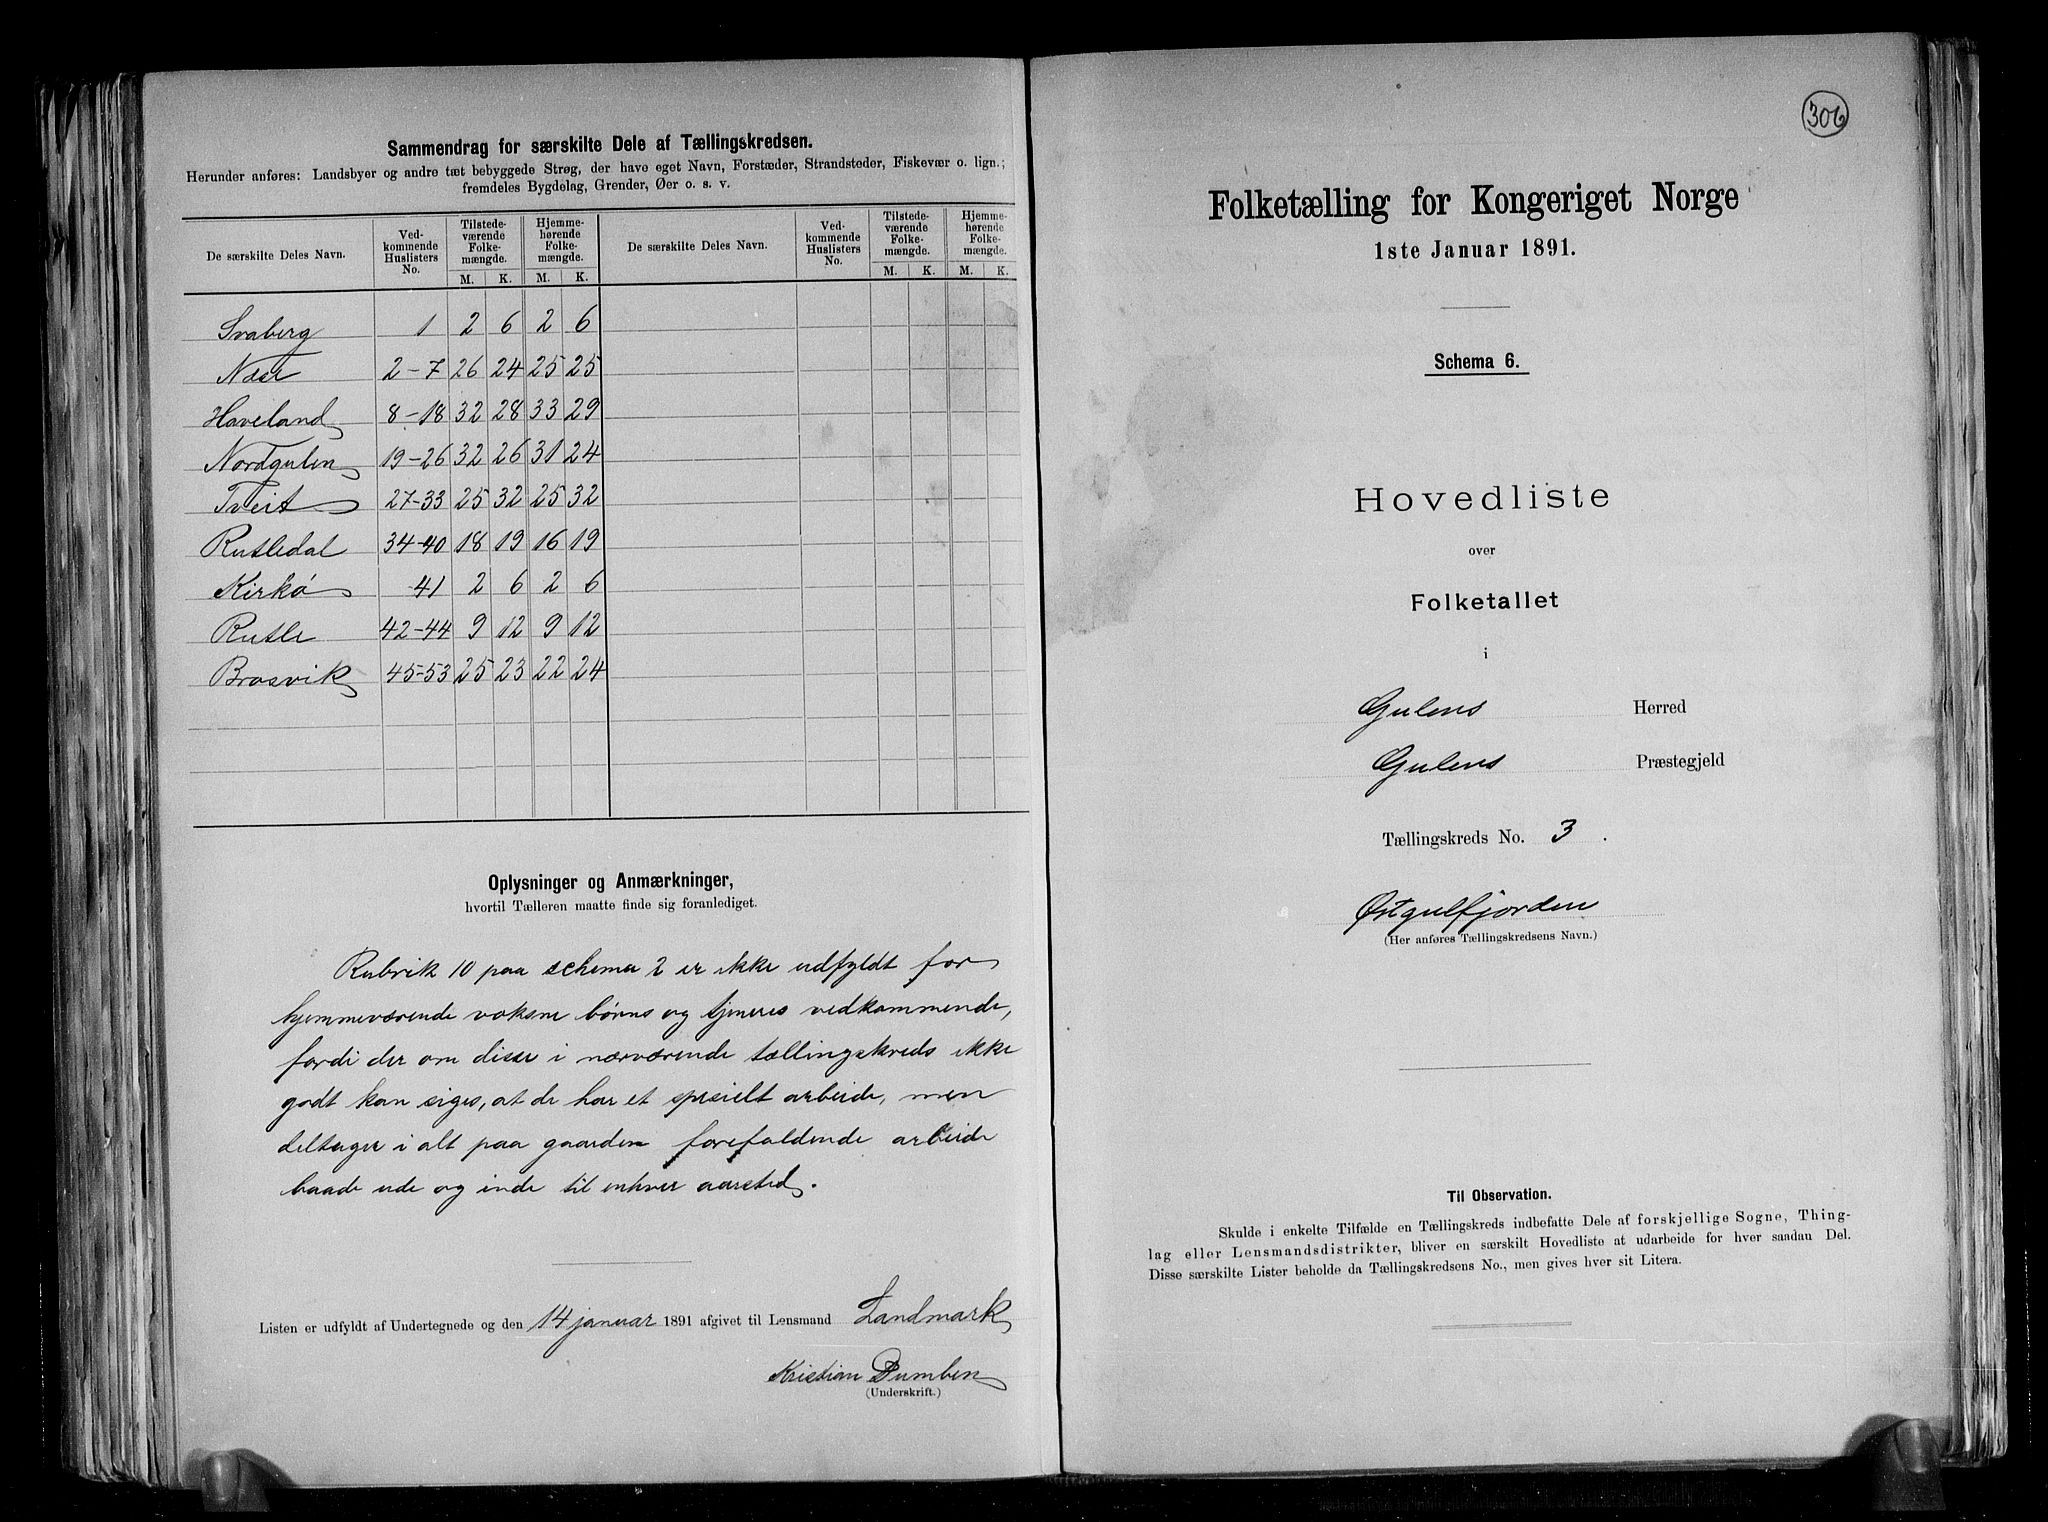 Sammendrag for særskilte Dele af Tællingskredsen.
Herunder anføres: Landsbyer og andre tæt bebyggede Strøg, der have eget Navn, Forstæder, Strandsteder, Fiskevær o. lign.;
fremdeles Bygdelag, Grender, Øer o. s. v.
De særskilte Deles Navn. Ved-kommende Huslisters No. Tilstede-værende Folke-mængde. Hjemme-hørende Folke-mængde. De særskilte Deles Navn. Ved-kommende Huslisters No. Tilstede-værende Folke-mængde. Hjemme-hørende Folke-mængde.
M. K. M. K. M. K. M. K.
Svaberg 1 2 6 2 6
Næse 2-7 26 24 25 25
Haveland 8-18 32 28 33 29
Nordgulen 19-26 32 26 31 24
Tveit 27-33 25 32 25 32
Rutledal 34-40 18 19 16 19
Kirkö 41 2 6 2 6
Rutle 42-44 9 12 9 12
Brosvik 45-53 25 23 22 24
Oplysninger og Anmærkninger,
hvortil Tælleren maatte finde sig foranlediget.
Rubrik 10 paa schema 2 er ikke udfyldt for
hjemmeværende voksne børns og tjeneres vedkommende,
fordi der om disse i nærværende tællingskreds ikke
godt kan siges, at de har et spesielt arbeide, men
deltager i alt paa gaarden forefaldende arbeide
baade ude og inde til enhver aarstid.
Listen er udfyldt af Undertegnede og den 14 januar 1891 afgivet til Lensmand Landmark
Kristian Dumben
(Underskrift.)
306
Folketælling for Kongeriget Norge
1ste Januar 1891.
Schema 6.
Hovedliste
over
Folketallet
i
Gulens Herred
Gulens Præstegjeld
Tællingskreds No. 3.
Østgulfjorden
(Her anføres Tællingskredsens Navn.)
Til Observation.
Skulde i enkelte Tilfælde en Tællingskreds indbefatte Dele af forskjellige Sogne, Thing-
lag eller Lensmandsdistrikter, bliver en særskilt Hovedliste at udarbeide for hver saadan Del.
Disse særskilte Lister beholde da Tællingskredsens No., men gives hver sit Litera.